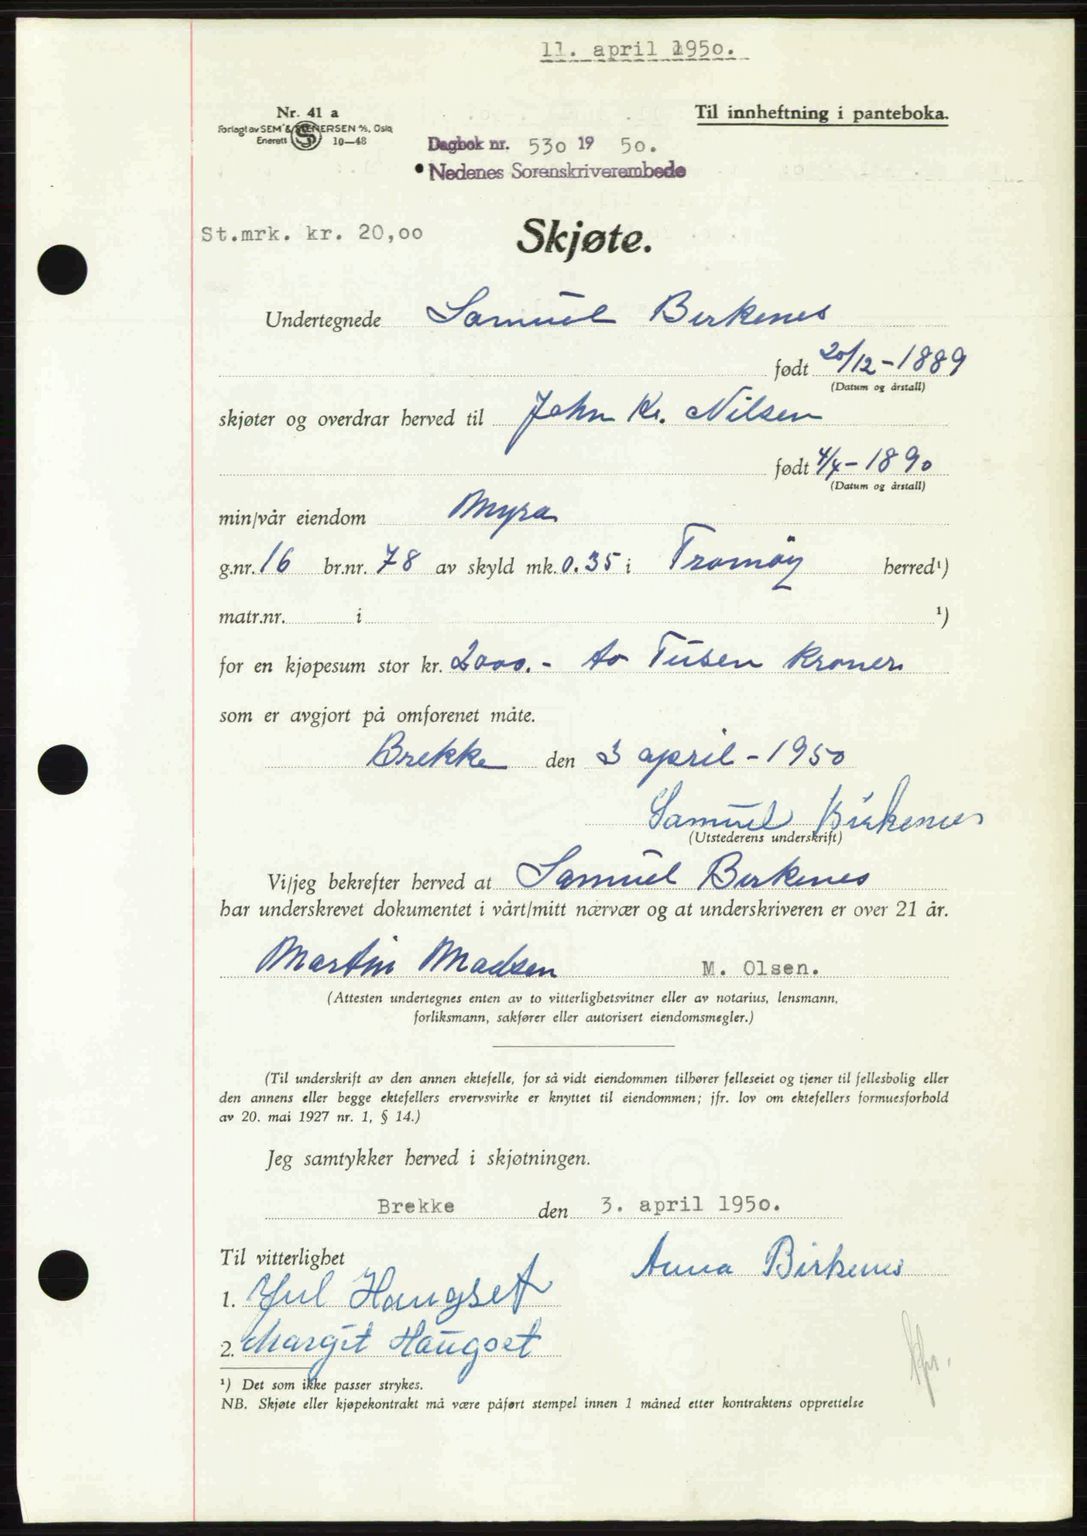 11. april 1950.
Nr. 41 a
Til innheftning i panteboka.
Forlagt av SEM & STENERSEN A/S, Oslo
Enerett 10—48
Dagbok nr. 530 19 50.
Nedenes Sorenskriverembede
St.mrk. kr. 20,00
Skjøte.
Undertegnede Samuel Birkenes
født 20/12-1889
(Datum og årstall)
skjøter og overdrar herved til John Kr. Nilsen
født 4/4-1890
(Datum og årstall)
min/vår eiendom Myra
g.nr. 16 br.nr. 78 av skyld mk. 0.35 i Tromøy herred¹)
matr.nr. i ¹)
for en kjøpesum stor kr. 2000.- to Tusen kroner
som er avgjort på omforenet måte.
Brekke den 3 april - 1950
Samuel Birkenes
(Utstederens underskrift)
Vi/jeg bekrefter herved at Samuel Birkenes
har underskrevet dokumentet i vårt/mitt nærvær og at underskriveren er over 21 år.
Martin Madsen M. Olsen.
(Attesten undertegnes enten av to vitterlighetsvitner eller av notarius, lensmann,
forliksmann, sakfører eller autorisert eiendomsmegler.)
(Til underskrift av den annen ektefelle, for så vidt eiendommen tilhører felleseiet og tjener til fellesbolig eller
den annens eller begge ektefellers ervervsvirke er knyttet til eiendommen; jfr. lov om ektefellers formuesforhold
av 20. mai 1927 nr. 1, § 14.)
Jeg samtykker herved i skjøtningen.
Brekke den 3. april 1950.
Til vitterlighet
Anna Birkenes
1. Haugset
2. Margit Haugset
¹) Det som ikke passer strykes.
NB. Skjøte eller kjøpekontrakt må være påført stempel innen 1 måned etter kontraktens opprettelse